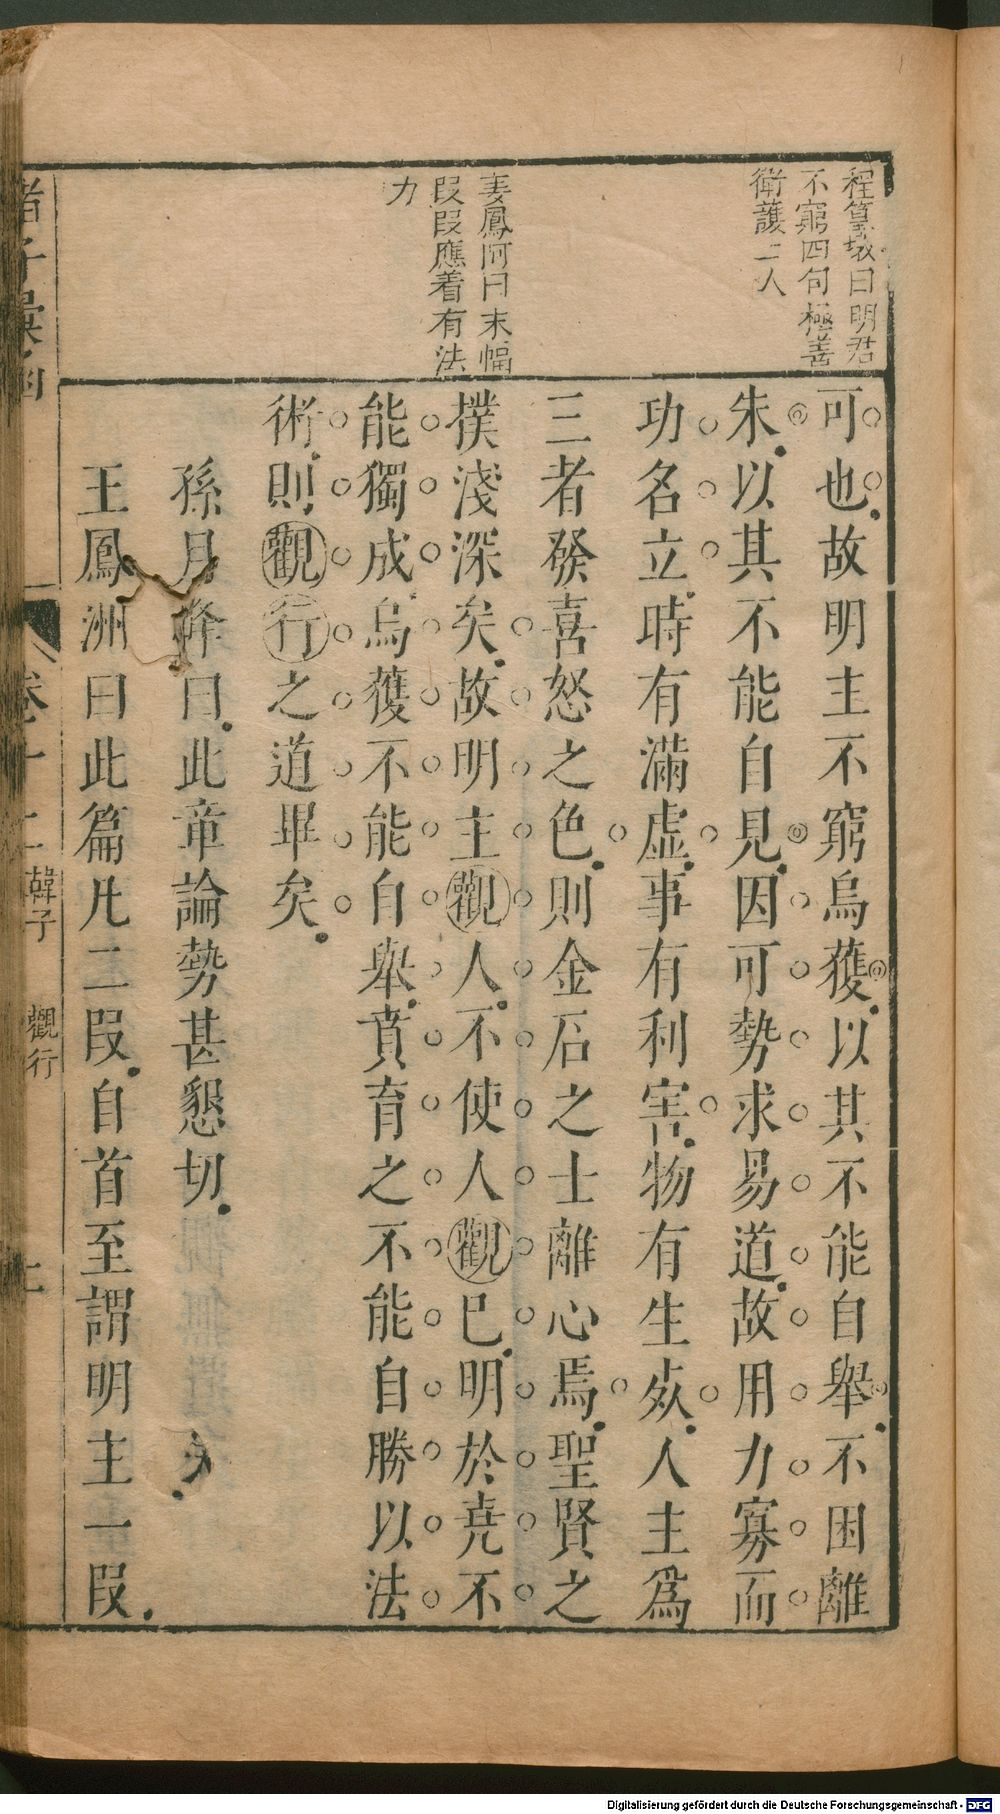 程篁墩曰明君
不窮四句極善
衛護二人
姜鳳阿曰末幅
段段應着有法
力
可也故明主不窮烏獲以其不能自舉不困離
朱以其不能自見因可勢求易道故用力寡而
功名立時有滿虛事有利害物有生死人主爲
三者發喜怒之色則金石之士離心焉聖賢之
撲淺深矣故明主觀人不使人觀己明於尭不
能獨成烏獲不能自舉賁育之不能自勝以法
術則觀行之道畢矣
孫月峰曰此章論勢甚懇切
王鳳洲曰此篇凡二段自首至謂明主一段
諸子彙函
卷十二
韓子
觀行
Digitalisierung gefördert durch die Deutsche Forschungsgemeinschaft - DFG